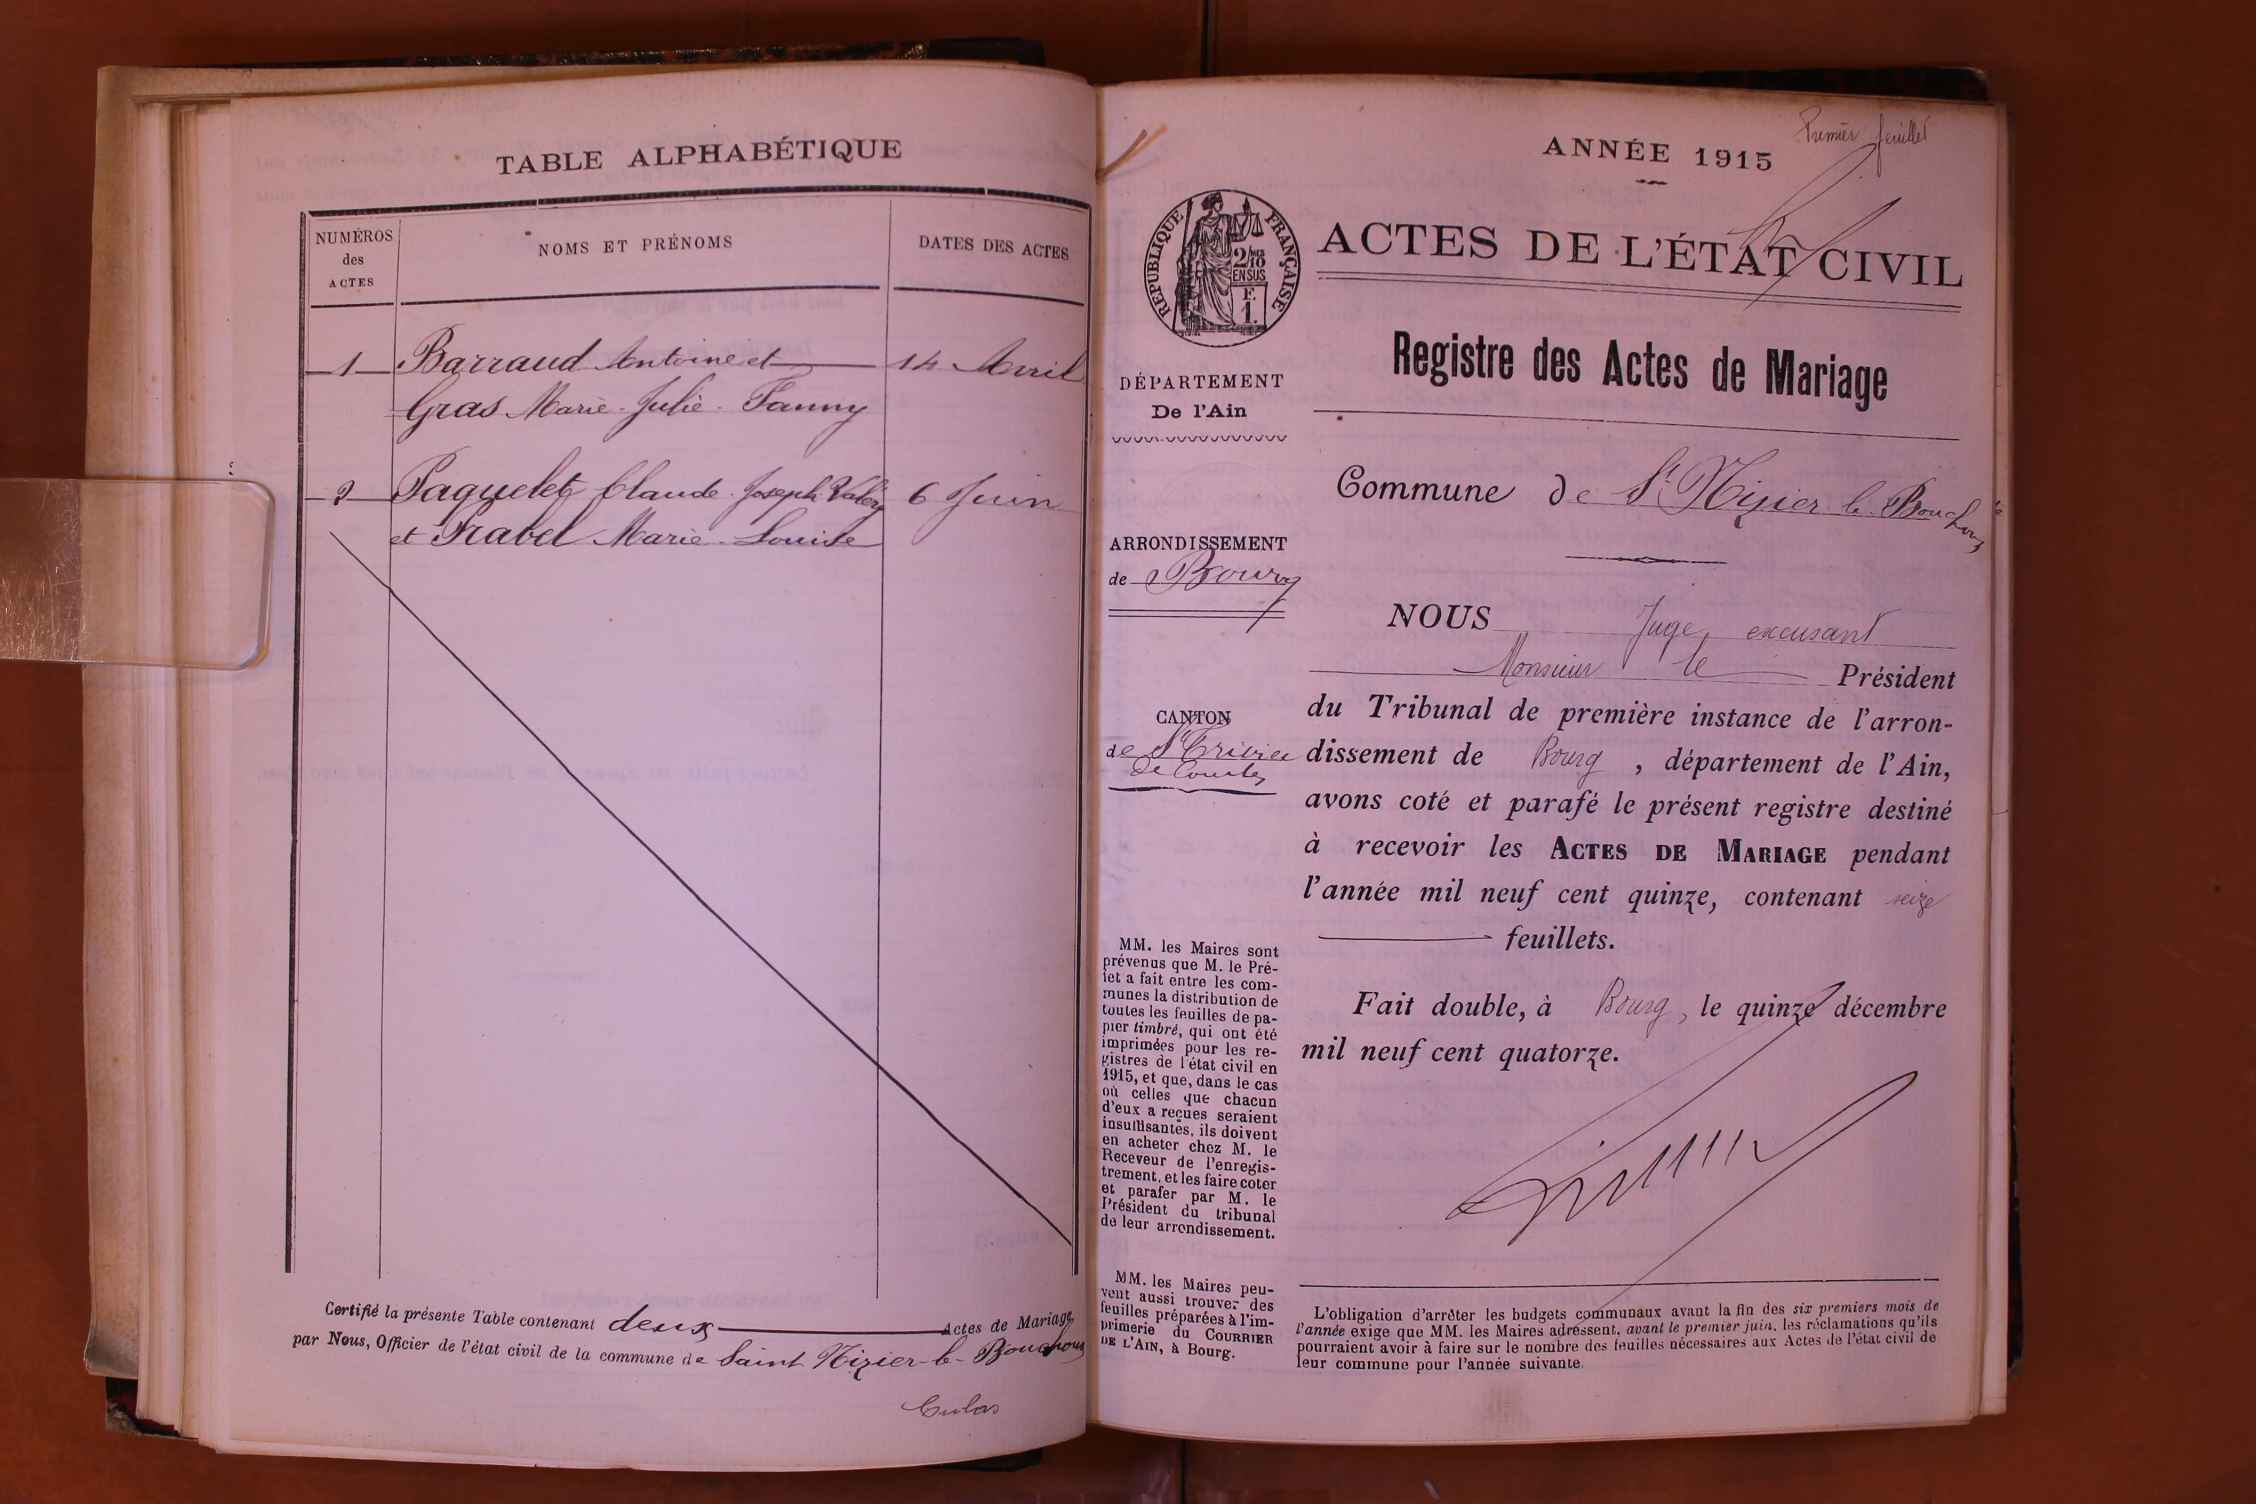 TABLE ALPHABÉTIQUE
NUMÉROS
des
ACTES
NOMS ET PRÉNOMS
DATES DES ACTES
1 Barraud Antoine et 14 Avril
Gras Marie-Julie-Fanny
2 Paquelet Claude-Joseph Valéry 6 Juin
et Prabel Marie-Louise
Certifié la présente Table contenant deux Actes de Mariage
par Nous, Officier de l'état civil de la commune de Saint Nizier-le-Bouchoux
Culas
Premier feuillet
ANNÉE 1915
RÉPUBLIQUE FRANÇAISE
2/10
EN SUS
F.
1.
ACTES DE L'ÉTAT CIVIL
Registre des Actes de Mariage
DÉPARTEMENT
De l'Ain
Commune de St Nizier-le-Bouchoux
ARRONDISSEMENT
de Bourg
CANTON
de St Trivier
de Courtes
NOUS Juge, excusant
Monsieur le Président
du Tribunal de première instance de l'arron-
dissement de Bourg, département de l'Ain,
avons coté et parafé le présent registre destiné
à recevoir les ACTES DE MARIAGE pendant
l'année mil neuf cent quinze, contenant seize
feuillets.
Fait double, à Bourg, le quinze décembre
mil neuf cent quatorze.
MM. les Maires sont
prévenus que M. le Pré-
fet a fait entre les com-
munes la distribution de
toutes les feuilles de pa-
pier timbré, qui ont été
imprimées pour les re-
gistres de l'état civil en
1915, et que, dans le cas
où celles que chacun
d'eux a reçues seraient
insuffisantes, ils doivent
en acheter chez M. le
Receveur de l'enregis-
trement, et les faire coter
et parafer par M. le
Président du tribunal
de leur arrondissement.
MM. les Maires peu-
vent aussi trouver des
feuilles préparées à l'im-
primerie du COURRIER
DE L'AIN, à Bourg.
L'obligation d'arrêter les budgets communaux avant la fin des six premiers mois de
l'année exige que MM. les Maires adressent, avant le premier juin, les réclamations qu'ils
pourraient avoir à faire sur le nombre des feuilles nécessaires aux Actes de l'état civil de
leur commune pour l'année suivante.